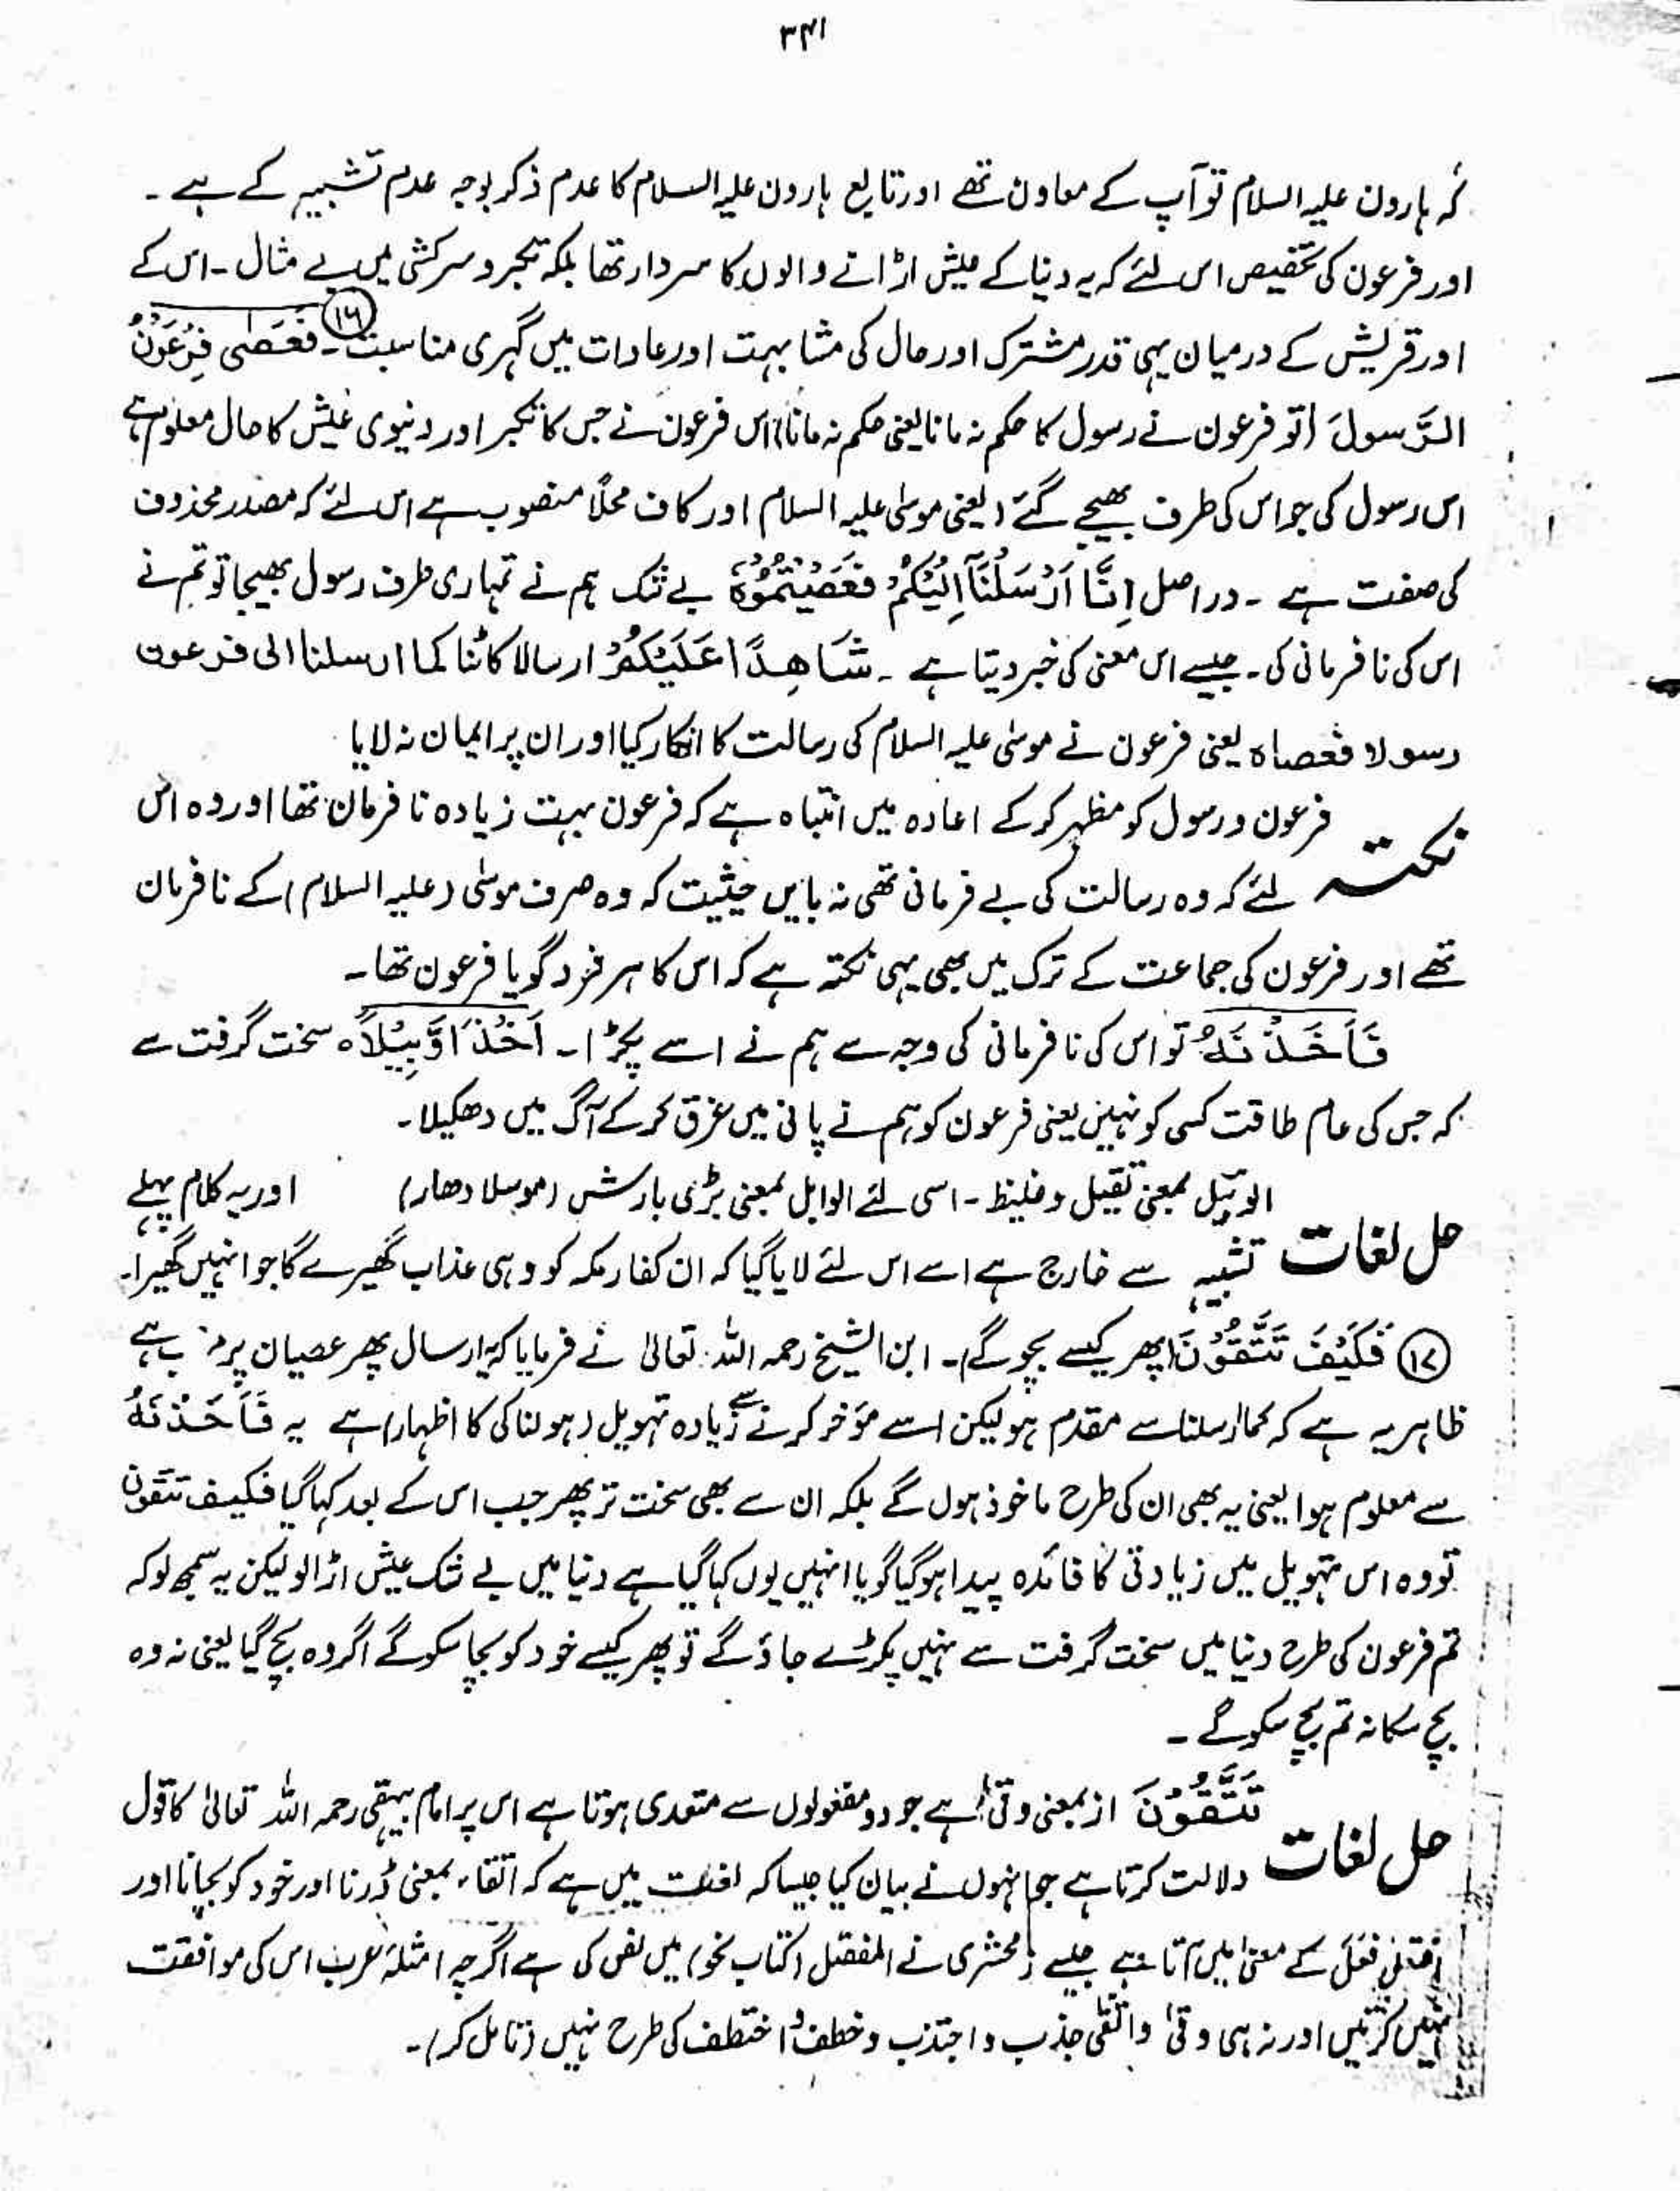 ۳۴۱
کہ ہارون علیہ السلام تو آپ کے معاون تھے اور تابع ہارون علیہ السلام کا عدم ذکر بوجہ عدم تشبیہ کے ہے ۔
اور فرعون کی تخصیص اس لئے کہ یہ دنیا کے عیش اڑانے والوں کا سردار تھا بلکہ تکبر و سرکشی میں بے مثال ۔ اس کے
اور قریش کے درمیان یہی قدر مشترک اور حال کی مشابہت اور عادات میں گہری مناسبت ۔ ⑯ فَعَصٰی فِرْعَوْنُ
الرَّسُولَ (تو فرعون نے رسول کا حکم نہ مانا یعنی حکم نہ مانا) اس فرعون نے جس کا تکبر اور دنیوی عیش کا حال معلوم ہے
اس رسول کی جو اس کی طرف بھیجے گئے (یعنی موسٰی علیہ السلام اور کاف محلاً منصوب ہے اس لئے کہ مصدر محذوف
کی صفت ہے ۔ دراصل اِنَّا اَرْسَلْنَآ اِلَیْکُمْ فَعَصَیْتُمُوْہُ بے شک ہم نے تمہاری طرف رسول بھیجا تو تم نے
اس کی نافرمانی کی ۔ جیسے اس معنی کی خبر دیتا ہے ۔ شَاھِدًا عَلَیْکُمْ ارسالا کائنا کما ارسلنا الی فرعون
رسولا فعصاہ یعنی فرعون نے موسٰی علیہ السلام کی رسالت کا انکار کیا اور ان پر ایمان نہ لایا
نکتہ فرعون و رسول کو مظہر کرکے اعادہ میں انتباہ ہے کہ فرعون بہت زیادہ نافرمان تھا اور وہ اس
لئے کہ وہ رسالت کی بے فرمانی تھی نہ بایں حیثیت کہ وہ صرف موسٰی (علیہ السلام) کے نافرمان
تھے اور فرعون کی جماعت کے ترک میں بھی یہی نکتہ ہے کہ اس کا ہر فرد گویا فرعون تھا ۔
فَاَخَذْنٰہُ تو اس کی نافرمانی کی وجہ سے ہم نے اسے پکڑا ۔ اَخْذًا وَّبِیْلًا ہ سخت گرفت سے
کہ جس کی عام طاقت کسی کو نہیں یعنی فرعون کو ہم نے پانی میں غرق کرکے آگ میں دھکیلا ۔
حل لغات الوبیل بمعنی ثقیل و غلیظ ۔ اسی لئے الوابل بمعنی بڑی بارش (موسلا دھار) اور یہ کلام پہلے
تشبیہ سے خارج ہے اسے اس لئے لایا گیا کہ ان کفار مکہ کو وہی عذاب گھیرے گا جو انہیں گھیرا ۔
⑰ فَکَیْفَ تَتَّقُوْنَ (پھر کیسے بچو گے) ۔ ابن الشیخ رحمہ اللہ تعالٰی نے فرمایا کہ یہ ارسال پھر عصیان پر ہے
ظاہر یہ ہے کہ کما ارسلنا سے مقدم ہو لیکن اسے مؤخر کرنے سے زیادہ تہویل (ہولناکی کا اظہار) ہے یہ فَاَخَذْنٰہُ
سے معلوم ہوا یعنی یہ بھی ان کی طرح ماخوذ ہوں گے بلکہ ان سے بھی سخت تر پھر جب اس کے بعد کہا گیا فکیف تتقون
تو وہ اس تہویل میں زیادتی کا فائدہ پیدا ہوگیا گویا انہیں یوں کہا گیا ہے دنیا میں بے شک عیش اڑا لو لیکن یہ سمجھ لو کہ
تم فرعون کی طرح دنیا میں سخت گرفت سے نہیں پکڑے جاؤ گے تو پھر کیسے خود کو بچا سکو گے اگر وہ بچ گیا یعنی نہ وہ
بچ سکا نہ تم بچ سکو گے ۔
حل لغات تَتَّقُوْنَ از بمعنی وقٰی ہے جو دو مفعولوں سے متعدی ہوتا ہے اس پر امام بیہقی رحمہ اللہ تعالٰی کا قول
دلالت کرتا ہے جو انہوں نے بیان کیا جیسا کہ لغت میں ہے کہ اتقاء بمعنی ڈرنا اور خود کو بچانا اور
فَعَلَ کے معنیٰ میں آتا ہے جیسے زمخشری نے المفصل (کتاب نحو) میں نص کی ہے اگرچہ امثلہ عرب اس کی موافقت
نہیں کرتیں اور نہ ہی وقٰی واتقٰی جذب و اجتذب و خطف و اختطف کی طرح نہیں (تامل کر) ۔